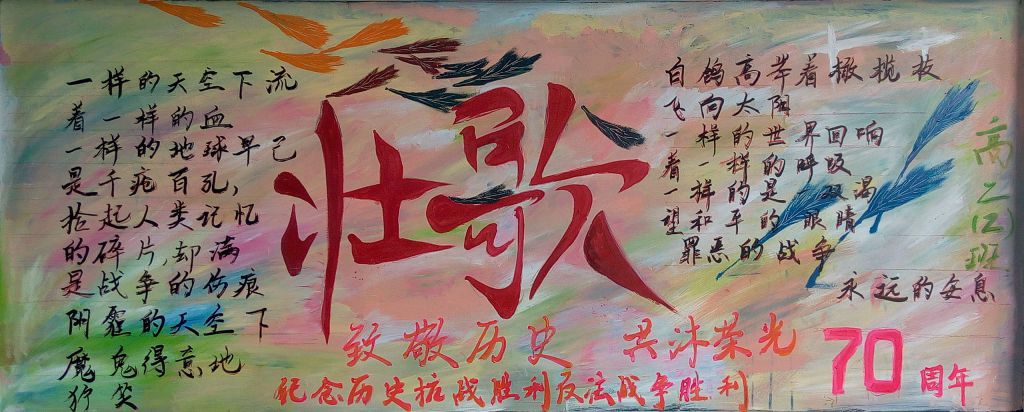 一样的天空下流
着一样的血
一样的地球早已
是千疮百孔，
拾起人类记忆
的碎片，却满
是战争的伤痕
阴霾的天空下
魔鬼得意地
狞笑
壮歌
白鸽高举着橄榄枝
飞向太阳
一样的世界回响
着一样的呼吸
一样的是一双渴
望和平的眼睛
罪恶的战争
永远的安息
高二(2)班
致敬历史 共沐荣光
纪念历史抗战胜利反法战争胜利
70周年